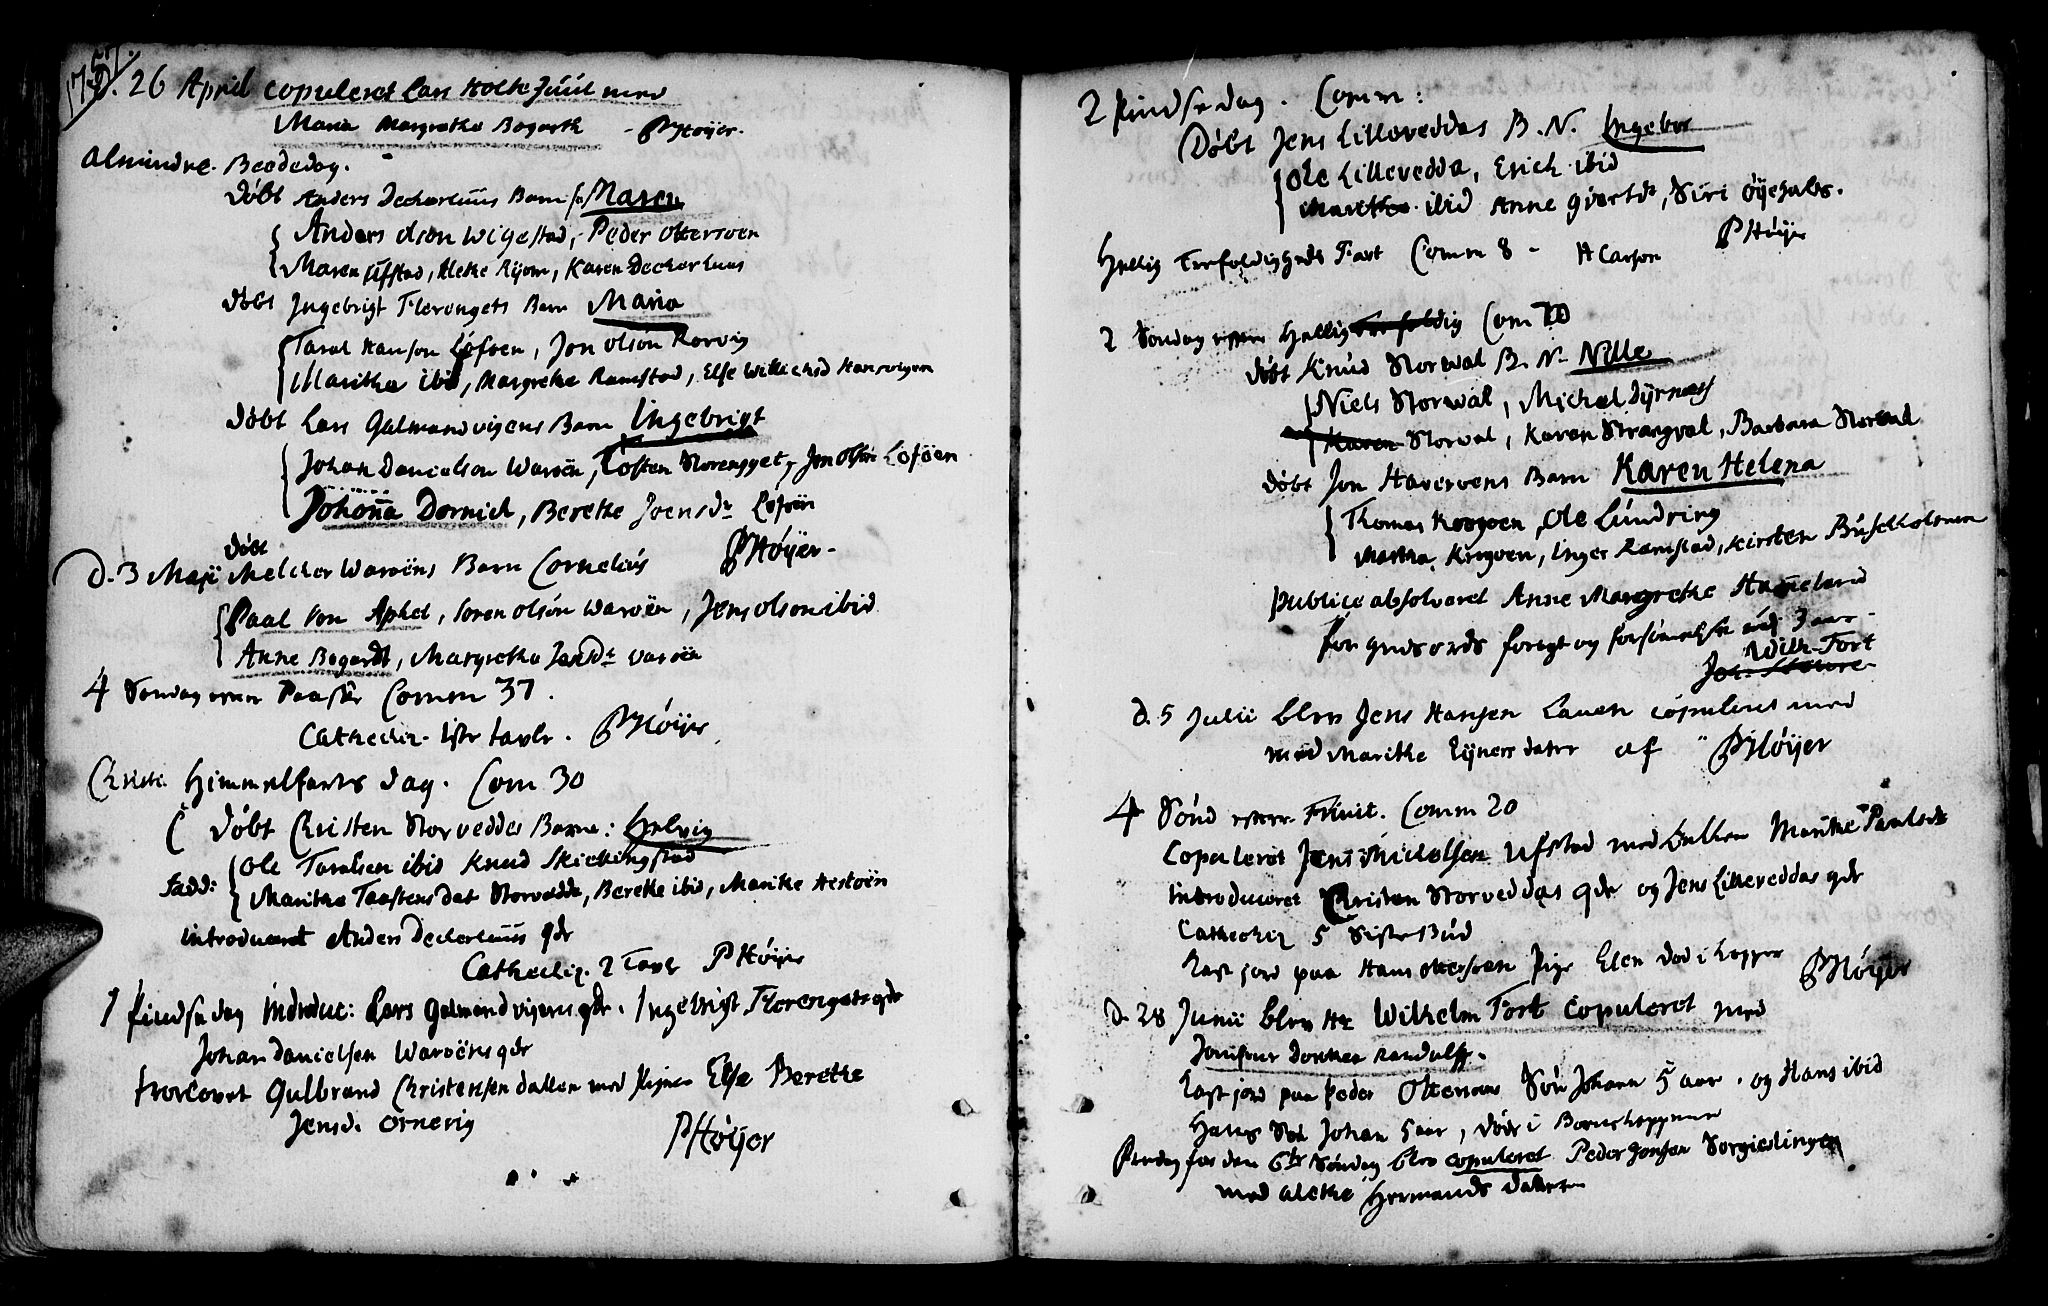 1757.
d. 26 April copuleret Lars Holte Juul med
Maria Margrethe Bogarth - PHöyer.
Almindre. Beededag.
Döbt Anders Deckerhuus Barn Maren
Anders Olson Wigestad, Peder Ottersoen
Maren Ufstad, Aleke Rijom, Karen Deckerhuus
Döbt Ingebrigt Flerengets Barn Maria
Taral Hanson Lofoen, Jon Olsön Rorvig
Marithe ibid, Margrethe Ramstad, Else Willichsd
Döbt Lars Galmandvigens Barn Ingebrigt
Johan Danielson Waroën, Tosten Storengget, Jon Olsön Lofoen
Johanna Dornich, Berethe Joensdr Lofoen
Döbt
d. 3 Maji Melcher Waroëns Barn Cornelius PHöyer-
Paal von Aphel, Soren Olsön Waroën, Jens Olson ibid
Anne Bogardt, Margrethe Jensdr Waroën
4 Söndag efter Paaske Comm 37.
Cathechiz. Iste tavle. PHöyer
Christi Himmelfarts dag. Com 30
Döbt Christen Storveddes Barn: Helvig
Fadd: Ole Taralsen ibid Knud Skichingstad
Marithe Taastensdat Storvedde, Berethe ibid, Marithe Hestoën
introduceret Anders Deckerhuus qdr
Cathechiz. 2 Tavle PHöyer
1 Pindsedag introduc: Lars Galmandvigens qdr. Ingebrigt Flerengets qdr
Johan Danielsen Waroëns qdr
trorlovet Gulbrand Christensen Dallen med Pigen Else Berethe
Jensd. Ornevig
PHöyer
2 Pindsedag. Comm:
Döbt Jens Lilleveddas B. N. Ingebor
Ole Lillevedda, Erich ibid
Marithe ibid Anne Giertsd, Siri Öyehals.
PHöyer
Hellig Trefoldigheds Fæst Comm 8 - H Carson
2 Söndag efter Hellig Trefoldig Com 70
Döbt Knud Storwal B. N. Nille
Niels Storwal, Michel Dyrnæs
Karen Storwal, Karen Strangval, Barbara Storwal
Döbt Jon Havervens Barn Karen Helena
Thomas Krogoen, Ole Lundring
Martha Krogoen, Inger Ramstad, Kirsten Buschholmen
publice absolveret Anne Margrethe Hammeland
for guds ords foragt og forsömelse udj 3 aar
Wilh. Tort
d. 5 Julii blev Jens Hansen Lauen copuleret med
med Marithe Eijners dater af PHöyer
4 Sönd efter Trinit. Comm 20
Copuleret Jens Nicholsen Ufstad med Enken Marithe Paulsdr
introduceret Christen Storveddas qdr og Jens Lilleveddas qdr
Cathechiz 5 Siste Bud
Kast jord paa Hans Ottersoen Pige Elen död i kopper
PHöyer
d. 28 Junii blev Hr Wilhelm Tort copuleret med
Jomfrue Dorthea Randulff.
Kast jord paa Peder Ottersens Sön Johann 5 aar. og Hans ibid
Hans Sön Johan 5 aar, döde i Börnekoppene
Fredag för den 6te Söndag blev copuleret Peder Jonsen Sorgiedlingen
med Alethe Hermands Datter